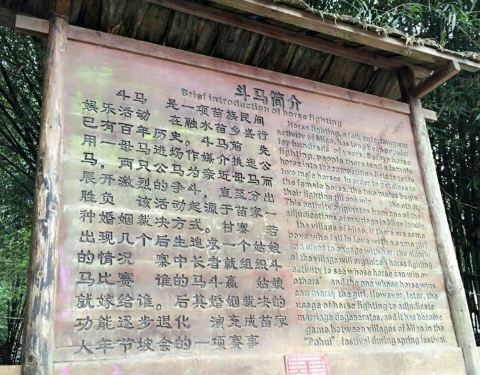 斗马简介
Brief introduction of horse fighting
斗马 是一项苗族民间
娱乐活动 在融水苗乡盛行
已有百年历史。斗马前 先
用一母马进场作媒介挑逗公
马，两只公马为亲近母马而
展开激烈的争斗，直至分出
胜负 该活动起源于苗家一
种婚姻裁决方式。村寨 若
出现几个后生追求一个姑娘
的情况 寨中长者就组织斗
马比赛 谁的马斗赢 姑娘
就嫁给谁。后其婚姻裁决的
功能逐步退化 演变成苗家
人年节坡会的一项赛事
Horse fighting, a folk entertainment
activity of Miao, has long been popular
for hundreds years. Before horse
fighting, people there lead a female
horse into the competition field to tempt
two male horses. In order to get close to
the female horse, the two males begin
their fighting till one win.
This activity originates from one of the
adjudications of marriage in Miao. In
the village of Miao, if there are several
boys who fall in love with a same girl
and want to engage with her, the elderly
of the village will organize horse fighting
activity to see whose horse can win
others' and the one whose horse wins
can marry the girl. However, later, the
usage of horse fighting to adjudicate
marriage degenerates, and it has become a
game between villages of Miao in the
"Pohui" festival during spring festival.